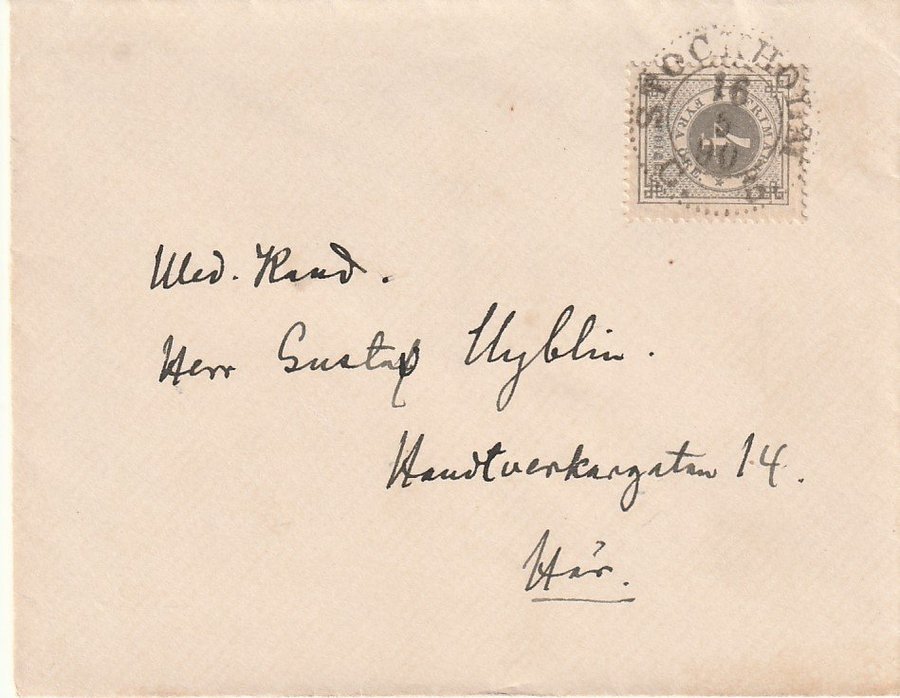 STOCKHOLM
16
5
90
FYRA
ÖRE.
4
Med. Kand.
Herr Gustaf Uyblin.
Handtverkargatan 14.
Här.